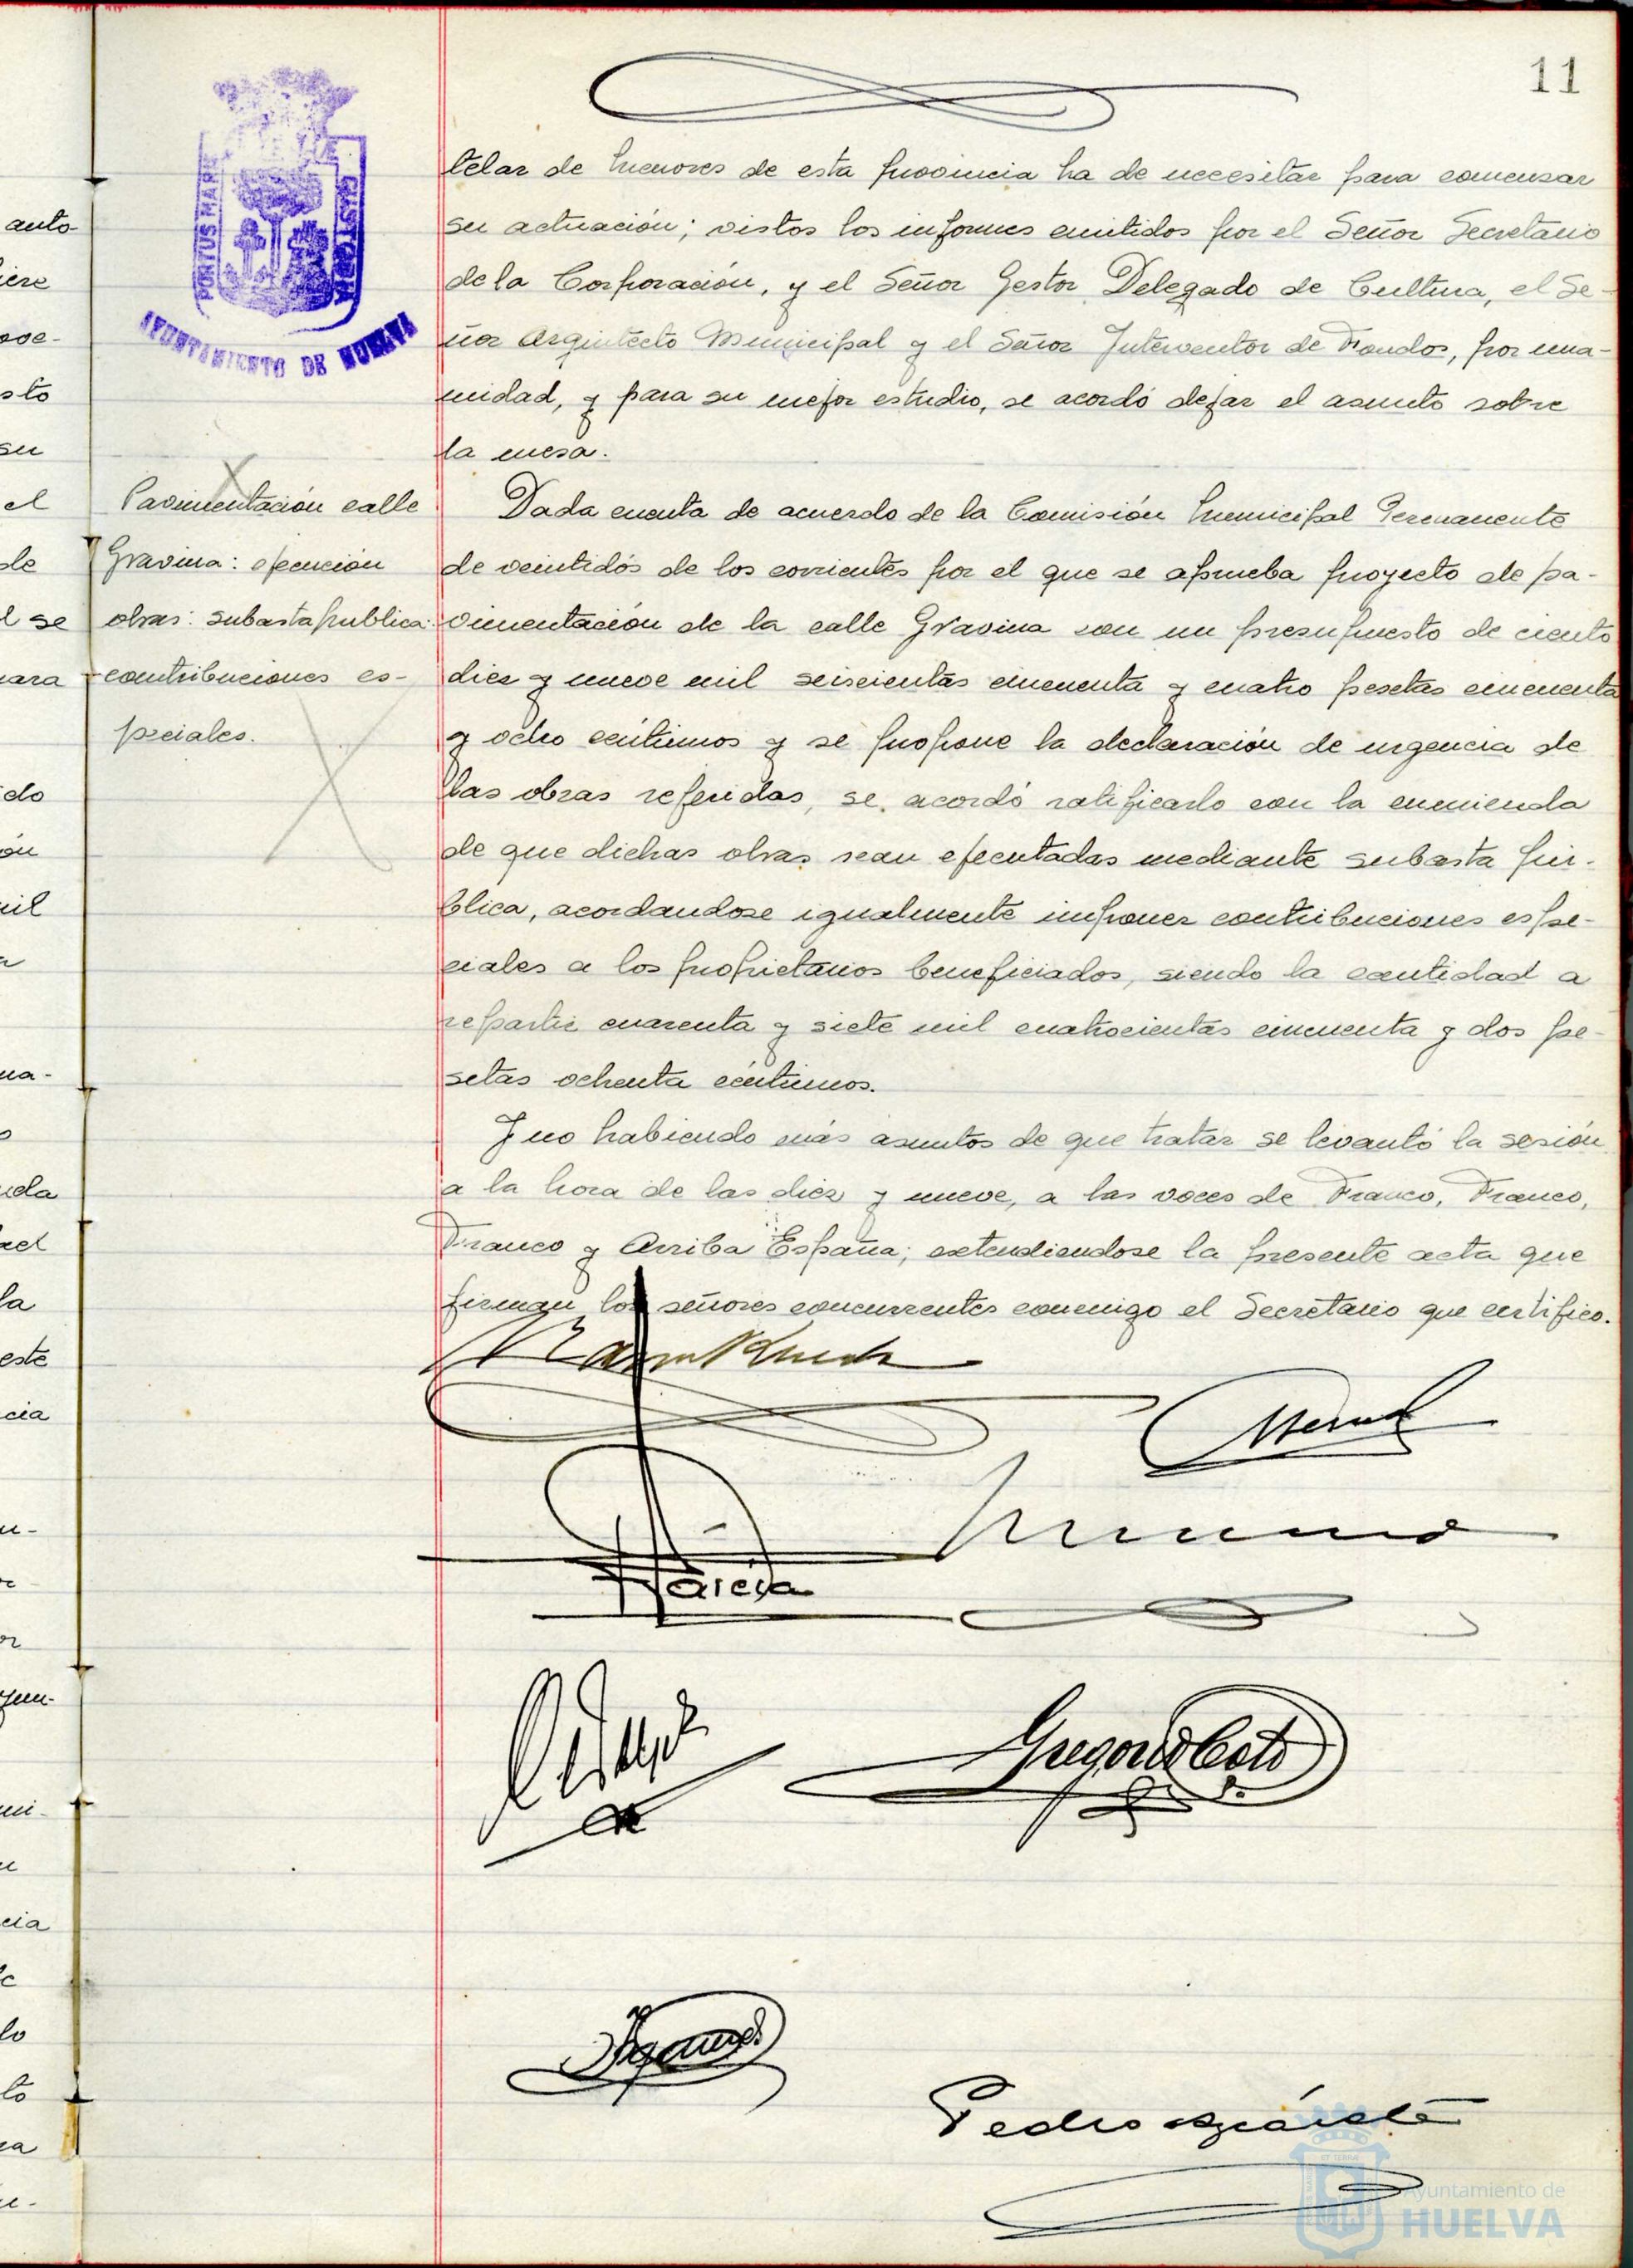 11
PORTUS MARIS
CUSTODIA
AYUNTAMIENTO DE HUELVA
auto-
iere
sto
su
el
de
l se
ara
do
ón
nil
na-
o
la
este
cia
telar de Menores de esta provincia ha de necesitar para comenzar
su actuación; vistos los informes emitidos por el Señor Secretario
de la Corporación, y el Señor Gestor Delegado de Cultura, el Se-
ñor Arquitecto Municipal y el Señor Interventor de Fondos, por una-
nidad, y para su mejor estudio, se acordó dejar el asunto sobre
la mesa.
Pavimentación calle
Gravina: ejecución
obras: subasta publica:
contribuciones es-
peciales.
Dada cuenta de acuerdo de la Comisión Municipal Permanente
de veintidós de los corrientes por el que se aprueba proyecto de pa-
vimentación de la calle Gravina con un presupuesto de ciento
diez y nueve mil seiscientas cincuenta y cuatro pesetas cincuenta
y ocho céntimos y se propone la declaración de urgencia de
las obras referidas, se acordó ratificarlo con la enmienda
de que dichas obras sean ejecutadas mediante subasta pú-
blica, acordandose igualmente imponer contribuciones espe-
ciales a los propietarios beneficiados, siendo la cantidad a
repartir cuarenta y siete mil cuatrocientas cincuenta y dos pe-
setas ochenta céntimos.
Y no habiendo más asuntos de que tratar se levantó la sesión
a la hora de las diez y nueve, a las voces de Franco, Franco,
Franco y Arriba España; extendiendose la presente acta que
firman los señores concurrentes conmigo el Secretario que certifico.
García
Gregorio Coto
Pedro
Ayuntamiento de
HUELVA